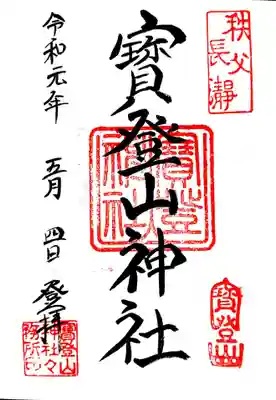 秩父
長瀞
寶登山神社
寶登山
神社
寶登山
令和元年 五月 四日 登拝
寶登山
神社々
務所印